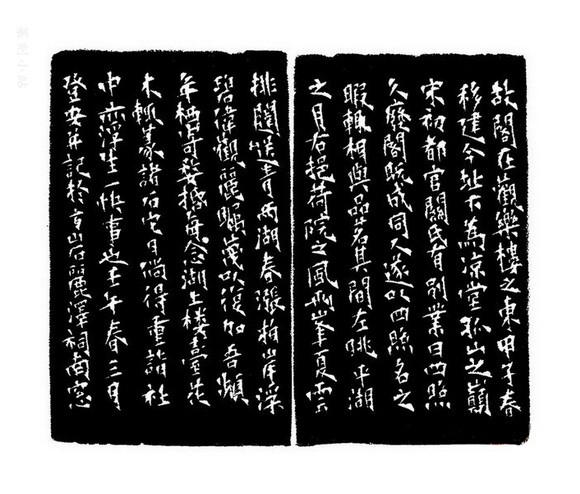 故閣在觀樂樓之東甲子春
移建今址下為涼堂孤山之巔
宋初都官關氏有別業曰四照
久廢閣既成同人遂以四照名之
暇輒相與品茗其間左眺平湖
之月右挹荷院之風兩峯夏雲
排闥送青兩湖春漲拍岸深
碧偉觀麗矚蔑以復加吾頻
年栖寄婺每念湖上樓臺花
木輒篆諸石它日倘得重詣社
中亦浮生一快事也壬午春三月
登安并記於方岩麗澤祠南窗